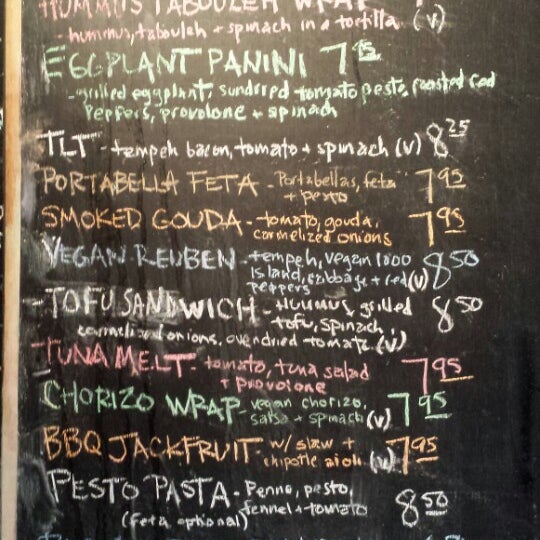 HUMMUS TABOULEH WRAP
- hummus, tabouleh + spinach in a tortilla. (v)
EGGPLANT PANINI 7.95
- grilled eggplant, sundried tomato pesto, roasted red
peppers, provolone + spinach
TLT - tempeh bacon, tomato + spinach (v) 8.25
PORTABELLA FETA - Portabellas, feta 7.95
+ pesto
SMOKED GOUDA - tomato, gouda, 7.95
carmelized onions
VEGAN REUBEN - tempeh, vegan 1000 8.50
Island, cabbage + red (v)
peppers
- TOFU SANDWICH - Hummus, grilled 8.50
tofu, spinach,
carmelized onions, ovendried tomato (v)
TUNA MELT - tomato, tuna salad 7.95
+ provolone
CHORIZO WRAP - vegan chorizo, 7.95
salsa + spinach (v)
BBQ JACKFRUIT - w/ slaw + 7.95
chipotle aioli (v)
PESTO PASTA - Penne, pesto, 8.50
fennel + tomato
(feta optional)